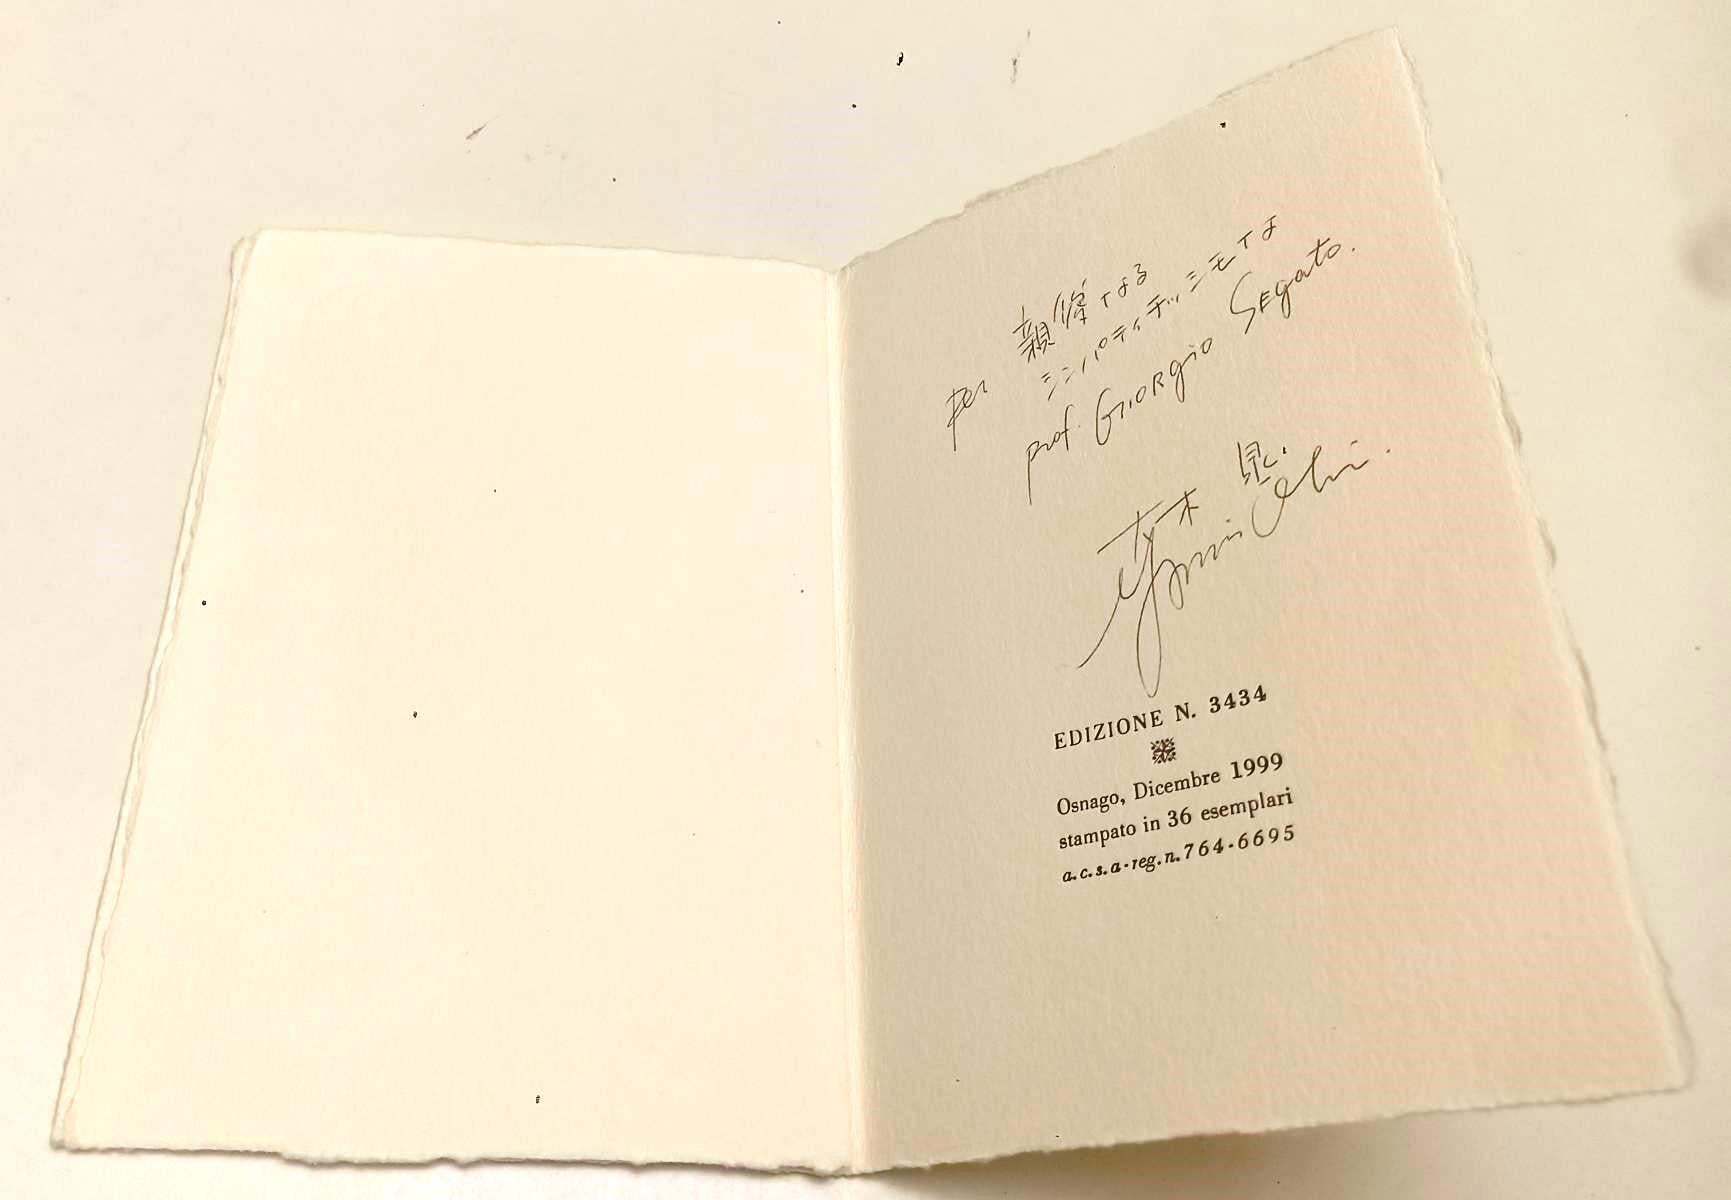 per 親愛なる
シンパティチッシモな
prof. GiORgio SEgato.
EDIZIONE N. 3434
Osnago, Dicembre 1999
stampato in 36 esemplari
a.c.s.a-reg.n.764-6695